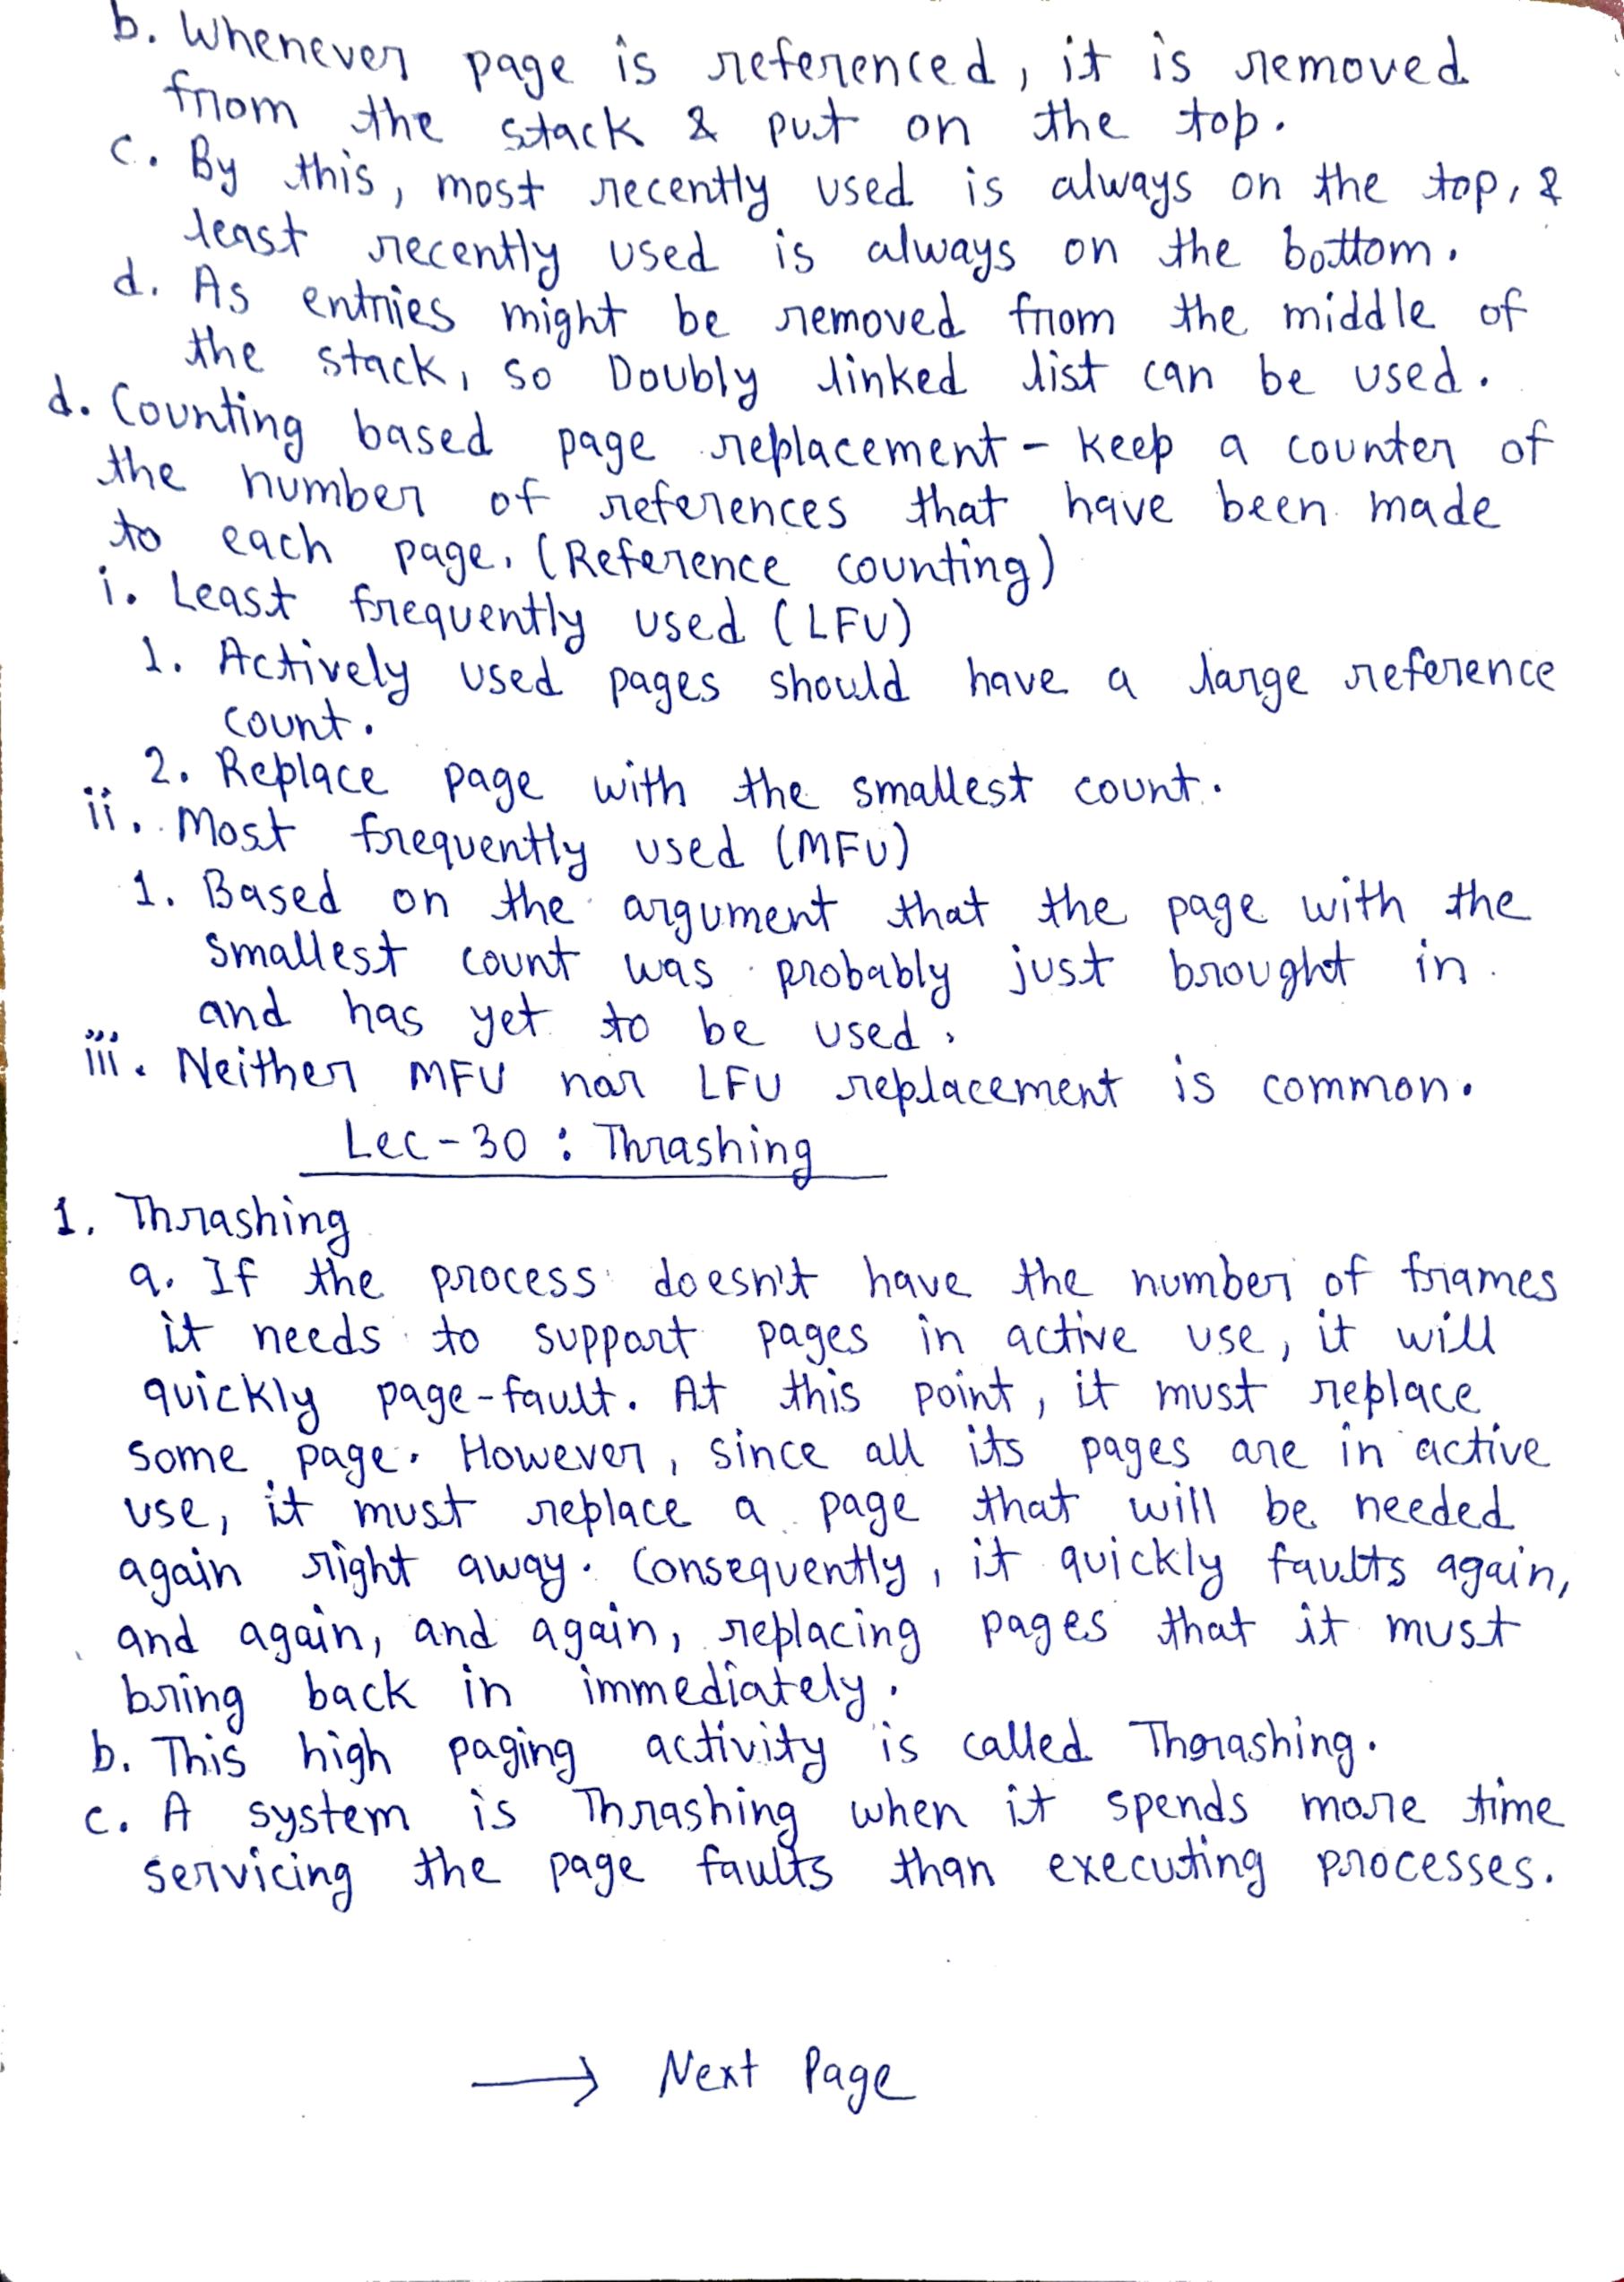 b. Whenever page is referenced, it is removed
from the stack & put on the top.
c. By this, most recently used is always on the top, &
least recently used is always on the bottom.
d. As entries might be removed from the middle of
the stack, so Doubly linked list can be used.
d. Counting based page replacement - Keep a counter of
the number of references that have been made
to each page. (Reference counting)
i. Least frequently used (LFU)
1. Actively used pages should have a large reference
count.
2. Replace page with the smallest count.
ii. Most frequently used (MFU)
1. Based on the argument that the page with the
smallest count was probably just brought in
and has yet to be used.
iii. Neither MFU nor LFU replacement is common.
Lec-30 : Thrashing
1. Thrashing
a. If the process doesn't have the number of frames
it needs to support pages in active use, it will
quickly page-fault. At this point, it must replace
some page. However, since all its pages are in active
use, it must replace a page that will be needed
again right away. Consequently, it quickly faults again,
and again, and again, replacing pages that it must
bring back in immediately.
b. This high paging activity is called Thrashing.
c. A system is Thrashing when it spends more time
servicing the page faults than executing processes.
→ Next Page